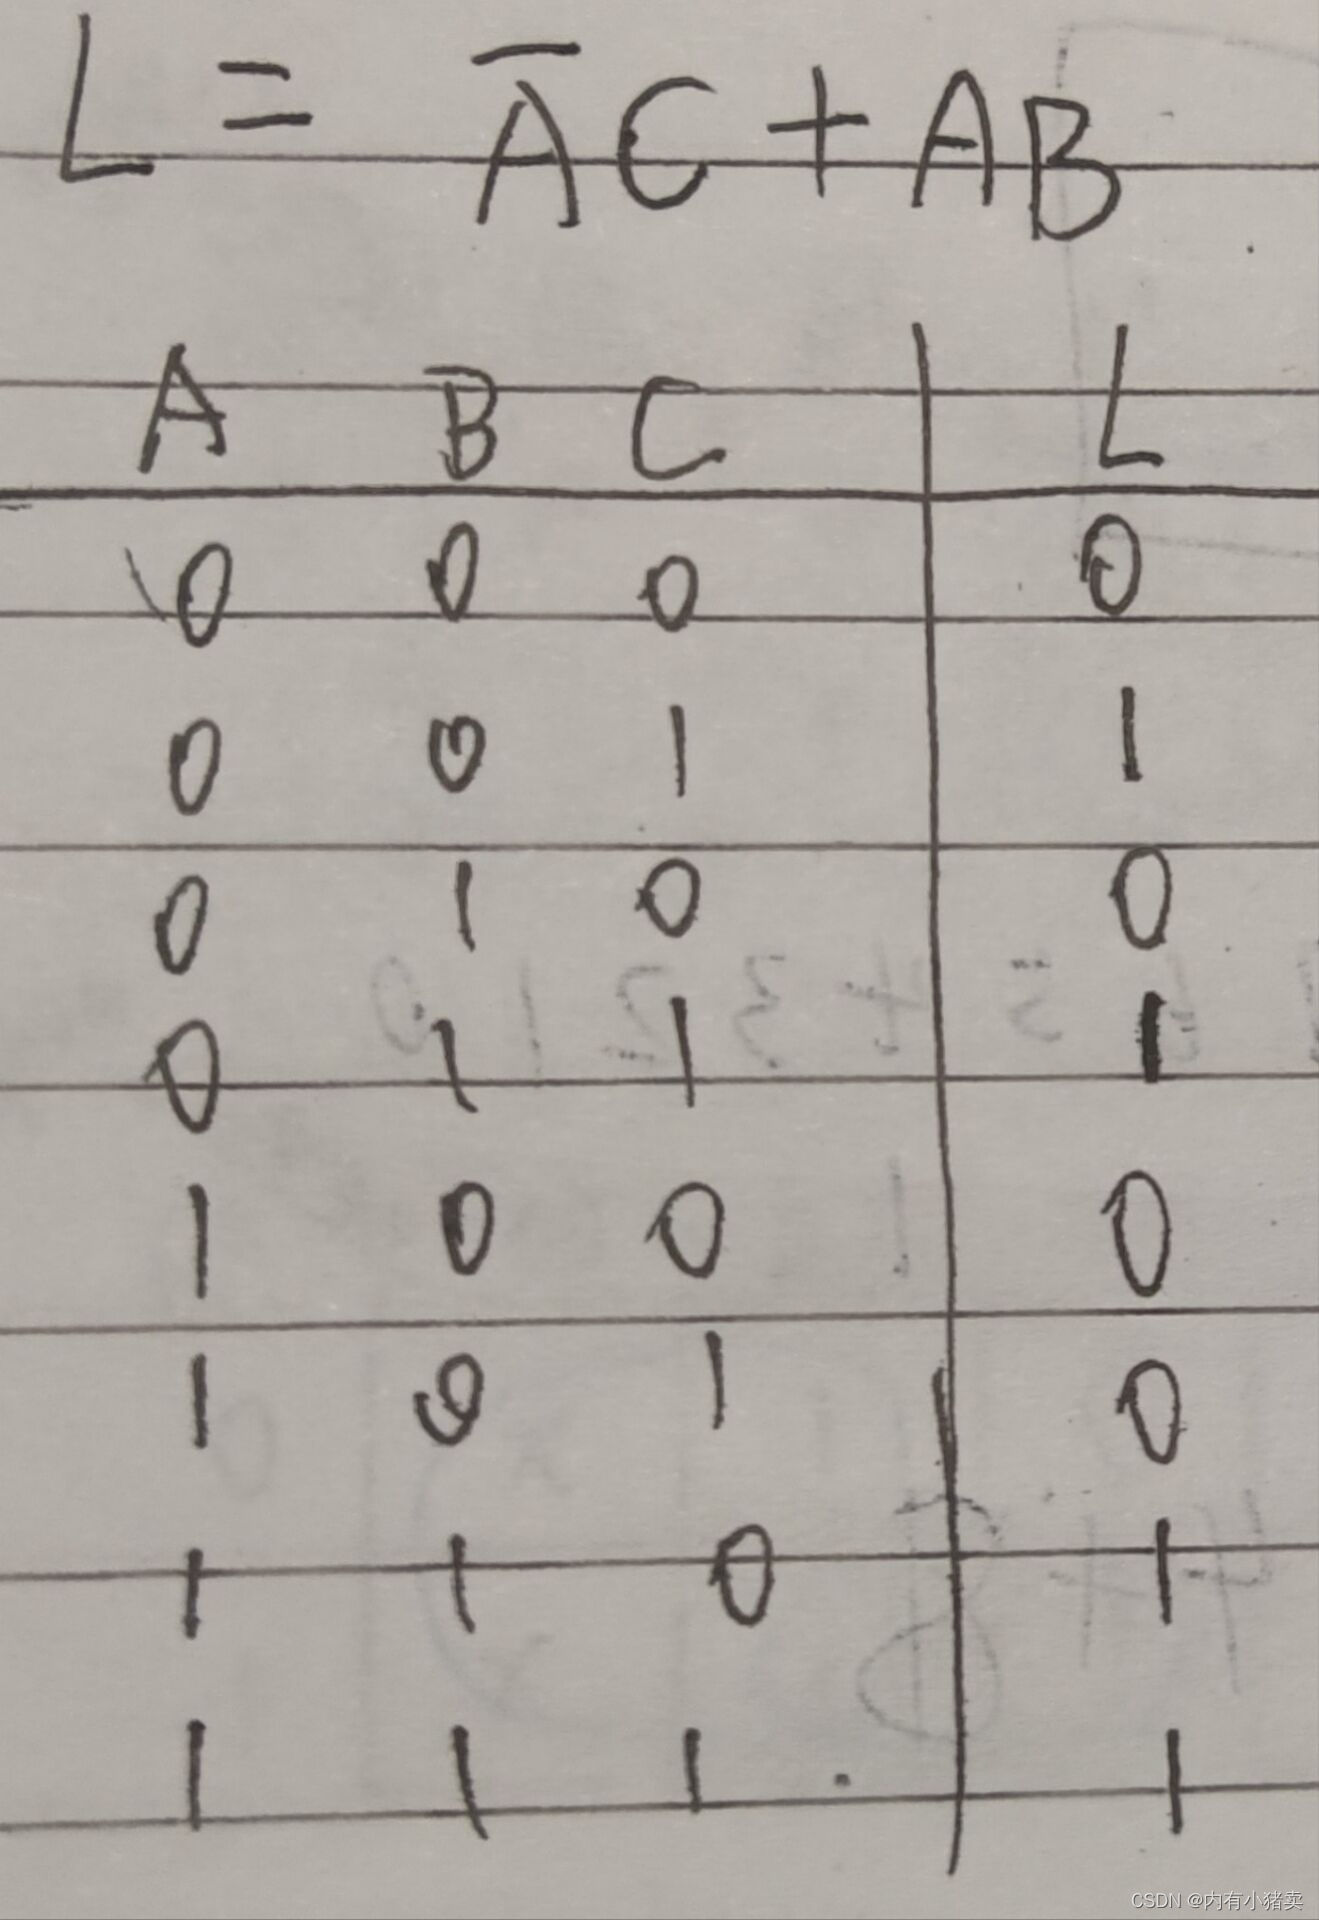 L = A̅C + AB
A B C L
0 0 0 0
0 0 1 1
0 1 0 0
0 1 1 1
1 0 0 0
1 0 1 0
1 1 0 1
1 1 1 1
CSDN @内有小猪卖